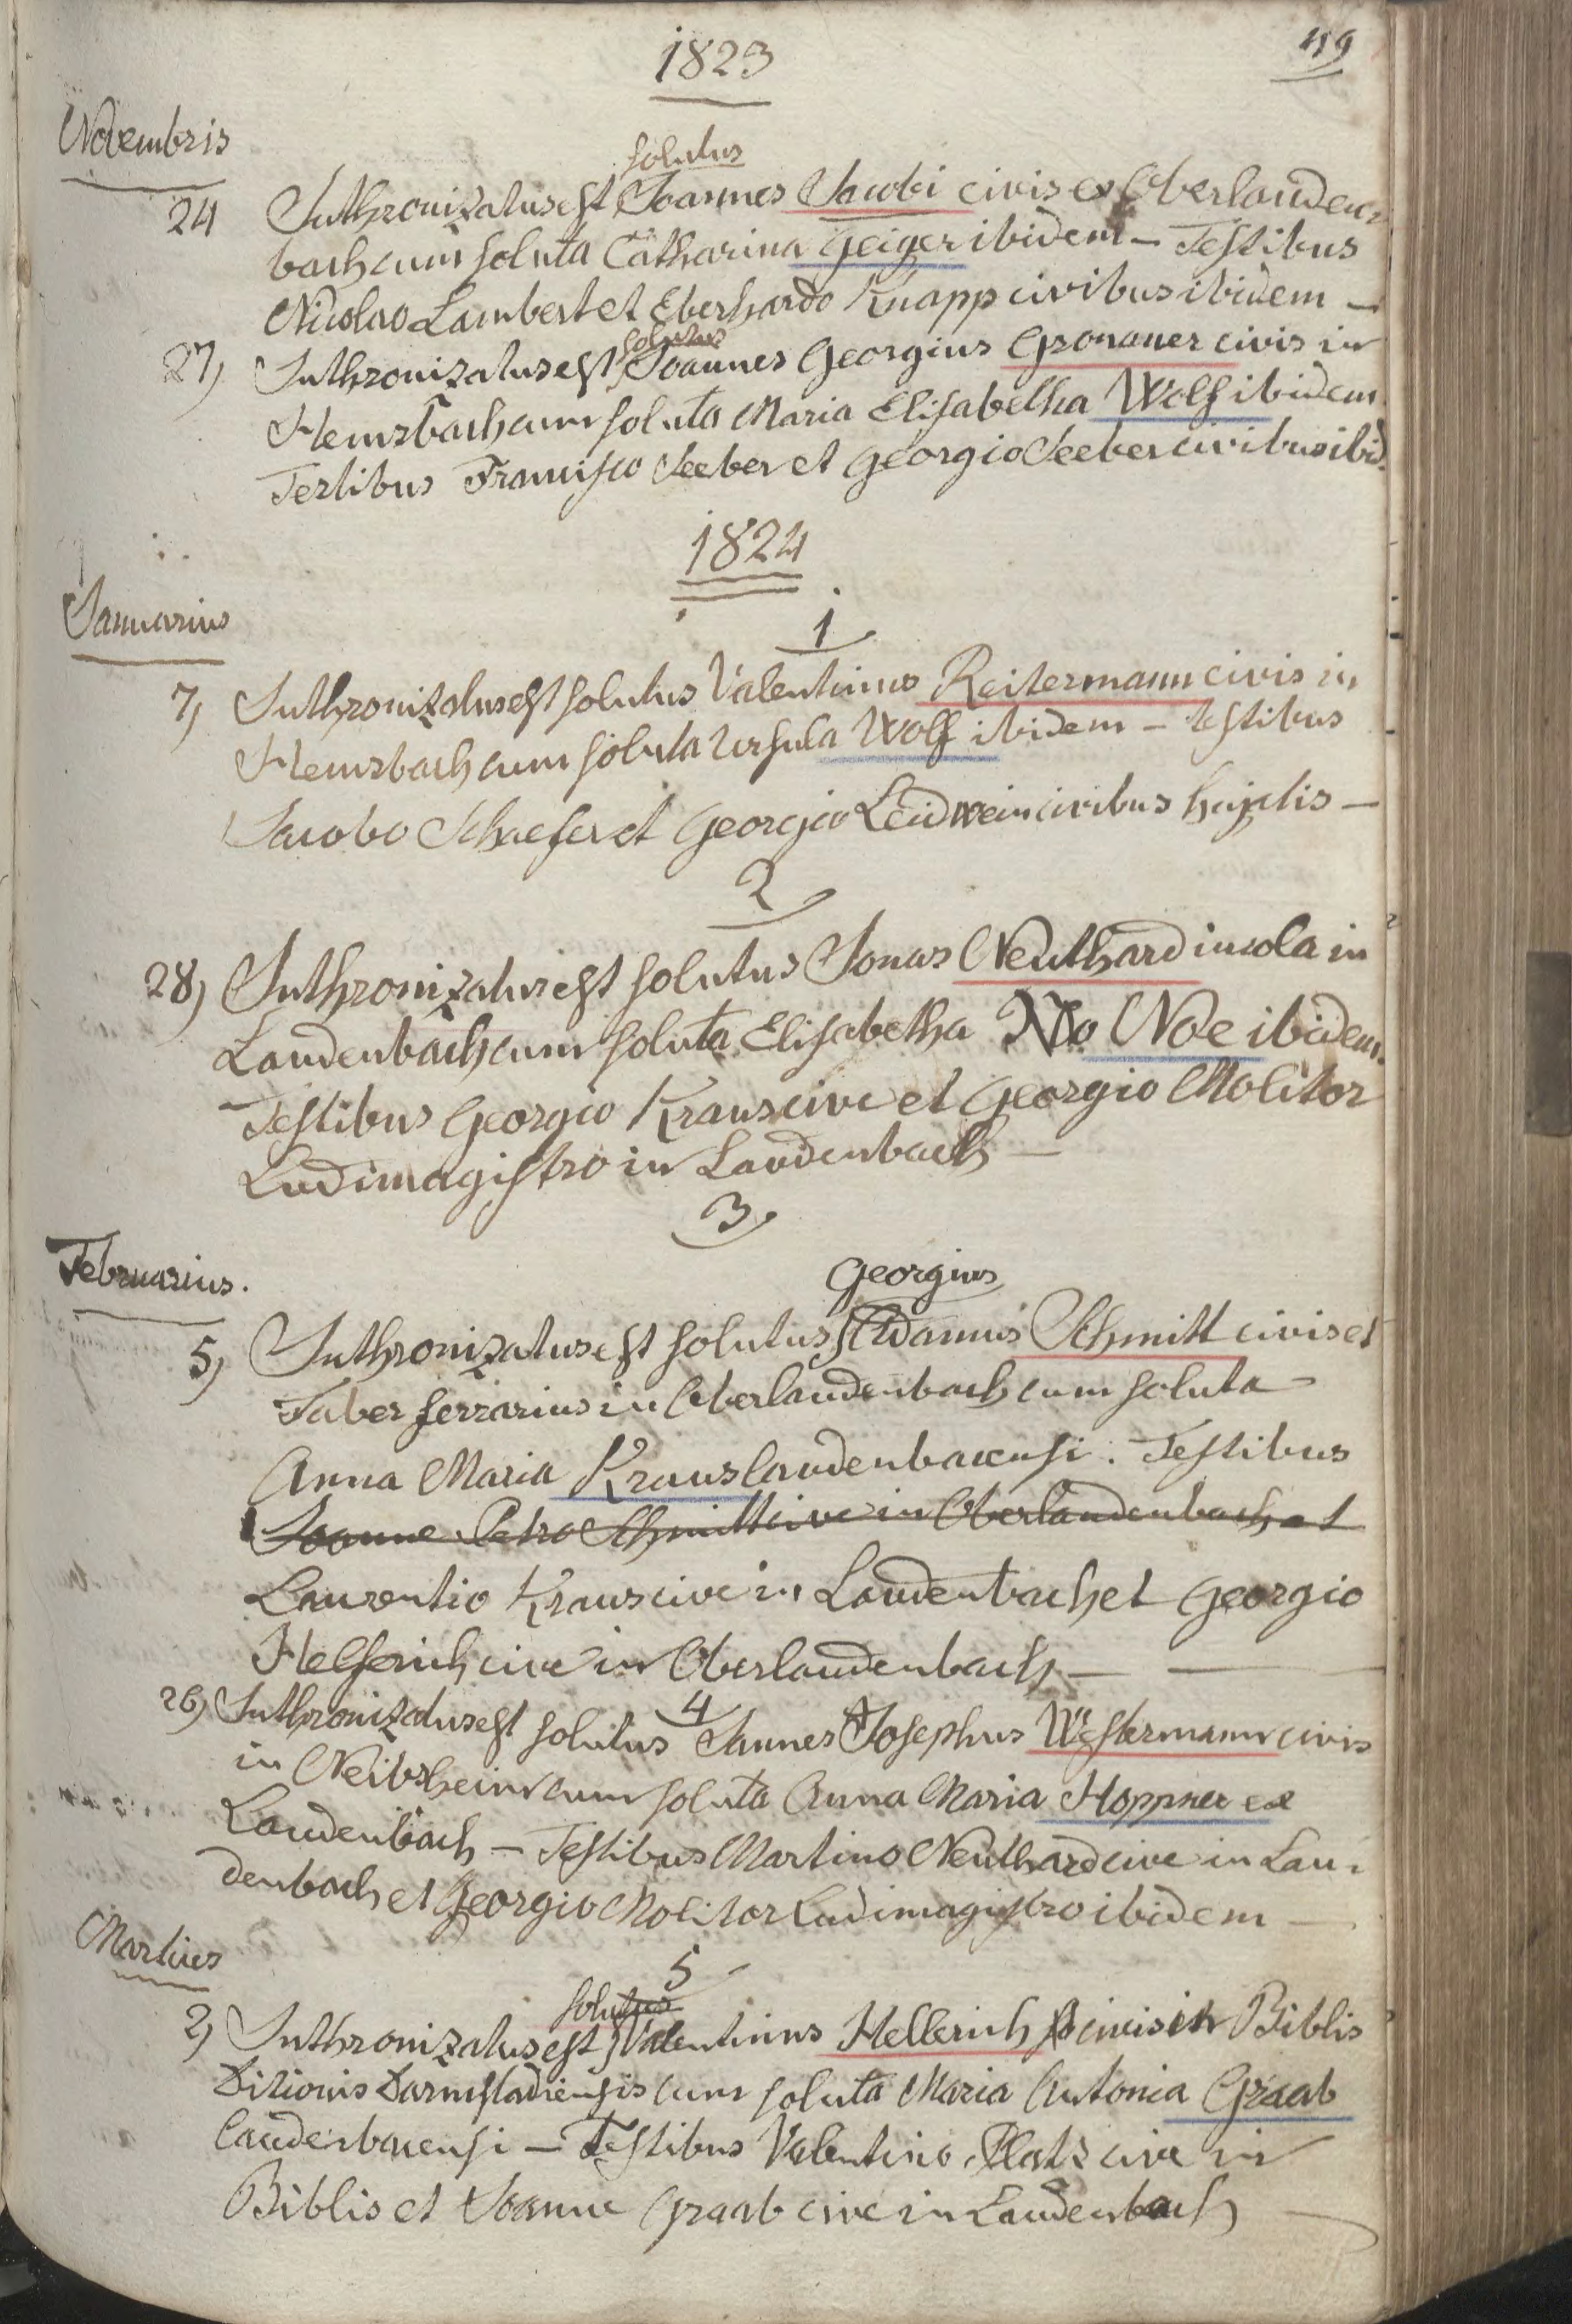 1823
119
Novembris
solutus
24 Inthronizatus est Joannes Jacobi civis ex Oberlauden-
bach cum soluta Catharina Geiger ibidem – Testibus
Nicolao Lambert et Eberhardo Knapp civibus ibidem –
solutus
27) Inthronizatus est Joannes Georgius Gronauer civis in
Hemsbach cum soluta Maria Elisabetha Wolf ibidem
Testibus Francisco Seeber et Georgio Seeber civibus ibid.
1824
Januarius
1
7) Inthronizatus est solutus Valentinus Reitermann civis in
Hemsbach cum soluta Ursula Wolf ibidem – testibus
Jacobo Schaefer et Georgio Leidwein civibus hujatis –
2
28) Inthronizatus est solutus Jonas Neuthard incola in
Laudenbach cum soluta Elisabetha No Noe ibidem.
Testibus Georgio Kraus cive et Georgio Molitor
Ludimagistro in Laudenbach –
3
Februarius.
Georgius
5) Inthronizatus est solutus Adamus Schmitt civis et
Faber ferrarius in Oberlaudenbach cum soluta
Anna Maria Kraus laudenbacensi. Testibus
Joanne Petro Schmitt cive in Oberlaudenbach et
Laurentio Kraus cive in Laudenbach et Georgio
Helferich cive in Oberlaudenbach –
4
26) Inthronizatus est solutus Jannes Josephus Westermann civis
in Neibsheim cum soluta Anna Maria Hoppner ex
Laudenbach – Testibus Martino Neuthard cive in Lau-
denbach et Georgio Molitor Ludimagistro ibidem –
Martius
5
solutus
2) Inthronizatus est Valentinus Hellerich civis in Biblis
Ditionis Darmstadiensis cum soluta Maria Antonia Graab
laudenbacensi – Testibus Valentino Platz cive in
Biblis et Joanne Graab cive in Laudenbach